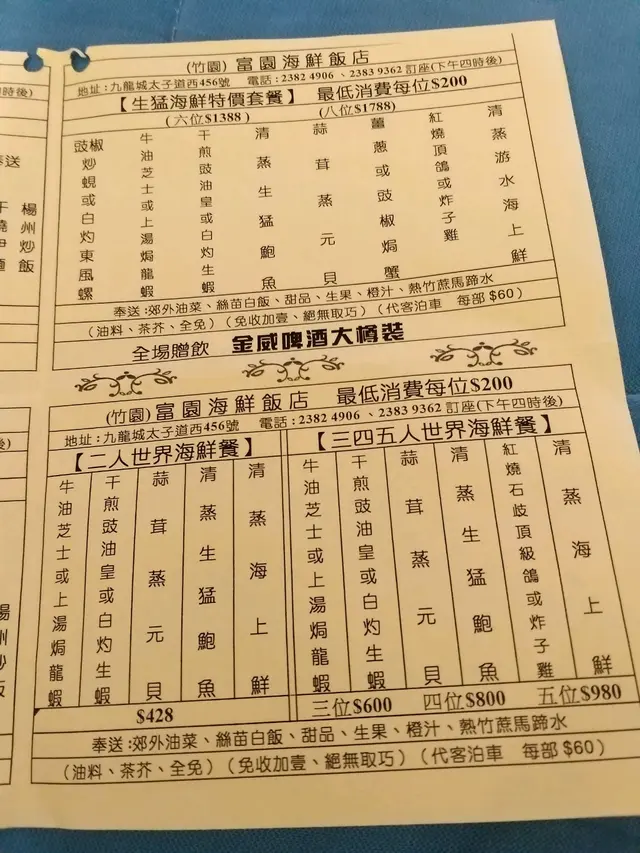 (竹園) 富園海鮮飯店
地址：九龍城太子道西456號 電話：2382 4906 、2383 9362 訂座(下午四時後)
【生猛海鮮特價套餐】 最低消費每位$200
(六位$1388) (八位$1788)
清蒸游水海上鮮
紅燒頂鴿或炸子雞
薑蔥或豉椒焗蟹
蒜茸蒸元貝
清蒸生猛鮑魚
干煎豉油皇或白灼生蝦
牛油芝士上湯龍蝦
豉椒炒蜆或白灼東風螺
奉送：郊外油菜、絲苗白飯、甜品、生果、橙汁、熱竹蔗馬蹄水
（油料、茶芥、全免）（免收加壹、絕無取巧）（代客泊車 每部 $60）
全場贈飲 金威啤酒大樽裝
(竹園) 富園海鮮飯店 最低消費每位$200
地址：九龍城太子道西456號 電話：2382 4906 、2383 9362 訂座(下午四時後)
【二人世界海鮮餐】
清蒸海上鮮
清蒸生猛鮑魚
蒜茸蒸元貝
干煎豉油皇或白灼生蝦
牛油芝士或上湯焗龍蝦
$428
【三四五人世界海鮮餐】
清蒸海上鮮
紅燒石岐頂級鴿或炸子雞
清蒸生猛鮑魚
蒜茸蒸元貝
干煎豉油皇或白灼生蝦
牛油芝士或上湯焗龍蝦
三位$600 四位$800 五位$980
奉送：郊外油菜、絲苗白飯、甜品、生果、橙汁、熱竹蔗馬蹄水
（油料、茶芥、全免）（免收加壹、絕無取巧）（代客泊車 每部 $60）